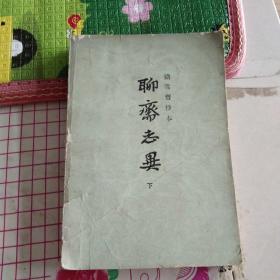 铸雪斋抄本
聊齋志異
下